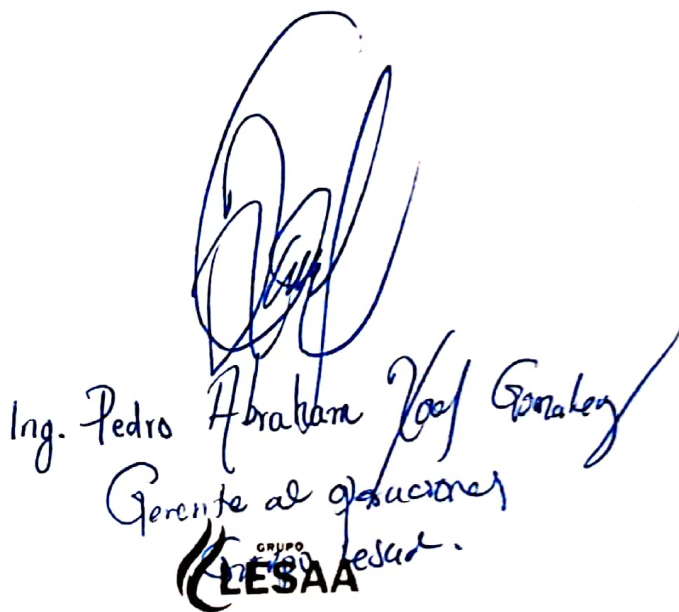 Ing. Pedro Abraham Gonzalez
Gerente de operaciones
Grupo Lesaa.
GRUPO
LESAA